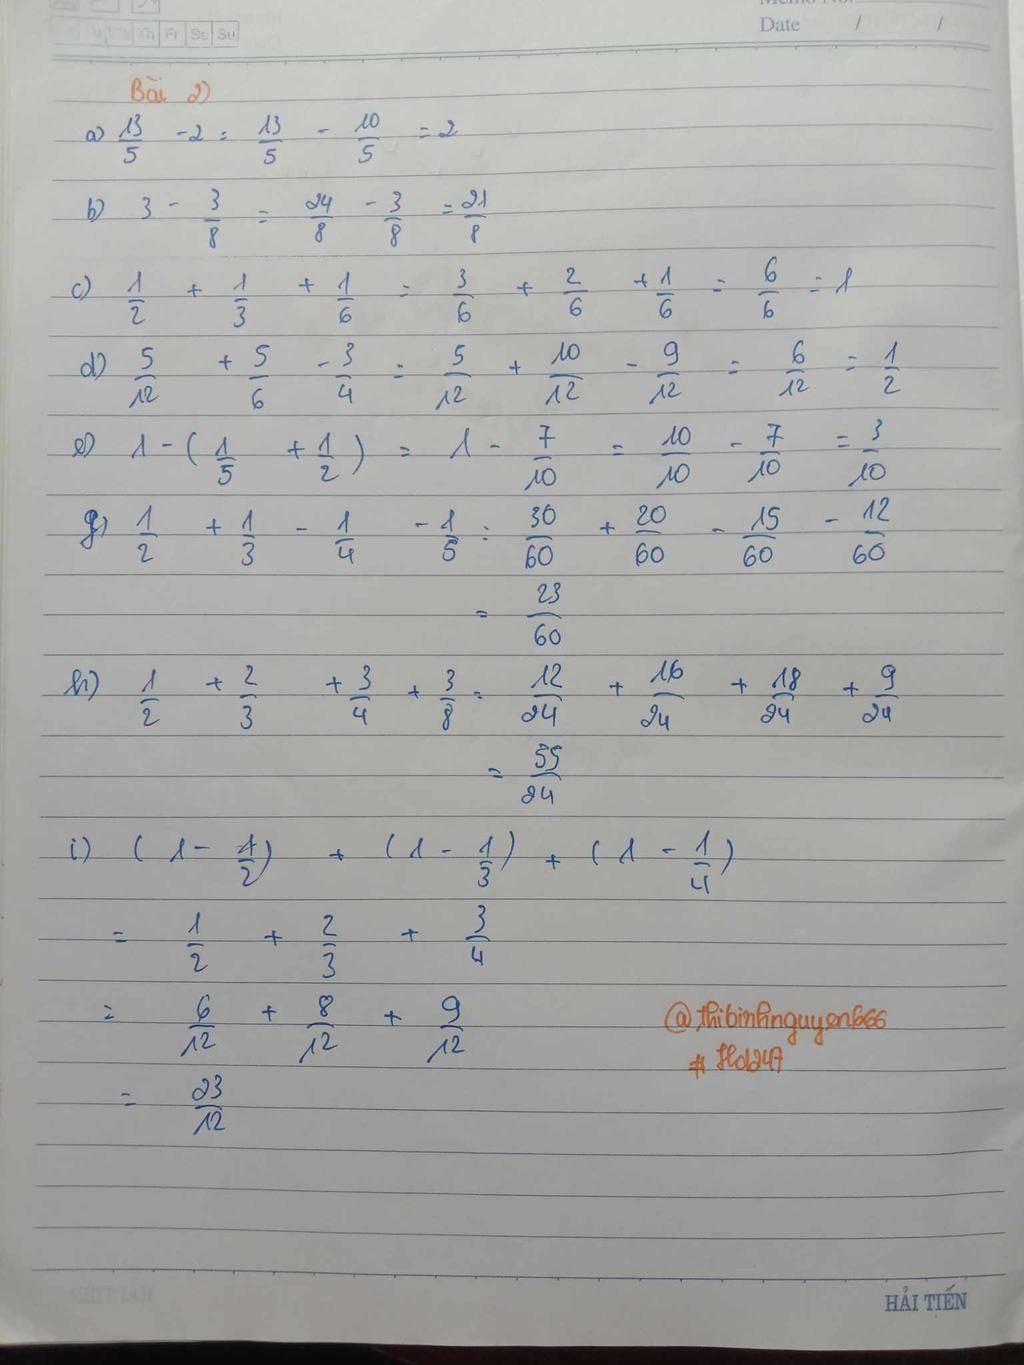 Memo No.
Th Fr Sa Su
Date / /
Bài 2)
a) 13/5 - 2 = 13/5 - 10/5 = 2
b) 3 - 3/8 = 24/8 - 3/8 = 21/8
c) 1/2 + 1/3 + 1/6 = 3/6 + 2/6 + 1/6 = 6/6 = 1
d) 5/12 + 5/6 - 3/4 = 5/12 + 10/12 - 9/12 = 6/12 = 1/2
e) 1 - (1/5 + 1/2) = 1 - 7/10 = 10/10 - 7/10 = 3/10
g) 1/2 + 1/3 - 1/4 - 1/5 = 30/60 + 20/60 - 15/60 - 12/60
= 23/60
h) 1/2 + 2/3 + 3/4 + 3/8 = 12/24 + 16/24 + 18/24 + 9/24
= 55/24
i) (1 - 1/2) + (1 - 1/3) + (1 - 1/4)
= 1/2 + 2/3 + 3/4
= 6/12 + 8/12 + 9/12
@thibinhnguyen666
# Hd247
= 23/12
HẢI TIẾN